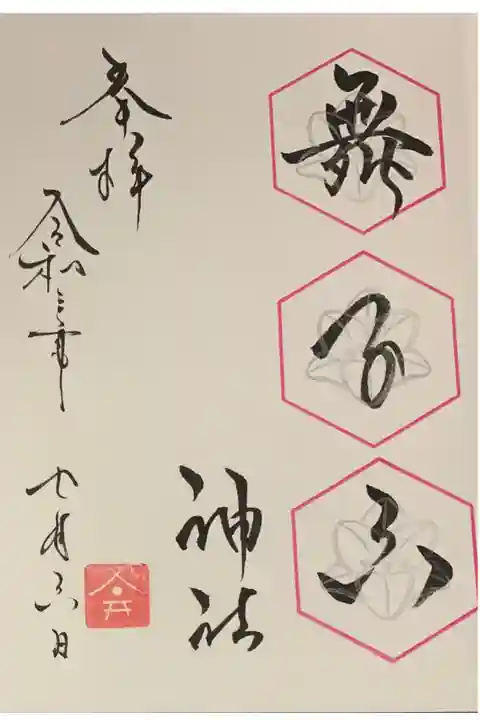 舞子六
神社
奉拝
令和三年
七月六日